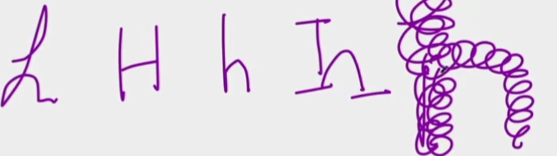 h H h h h